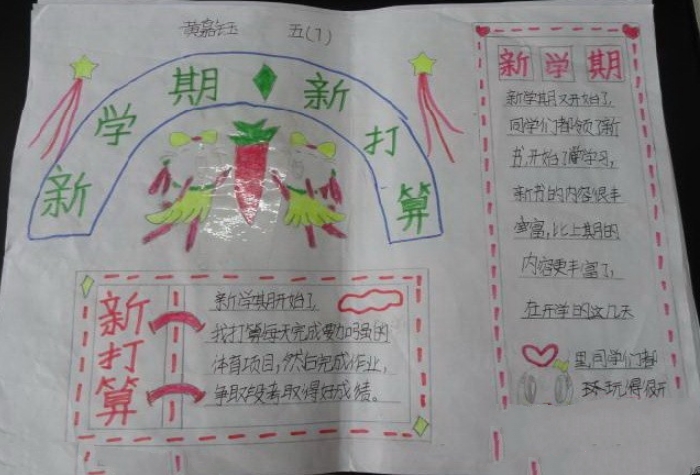 黄嘉钰 五(1)
新学期新打算
新学期
新学期又开始了,
同学们都领了新
书,开始了学习,
新书的内容很丰
富,比上期的
内容更丰富了,
在开学的这几天
里,同学们都
玩得很开
新打算
新学期开始了
我打算每天完成要加强的
体育项目,然后完成作业,
争取段考取得好成绩。